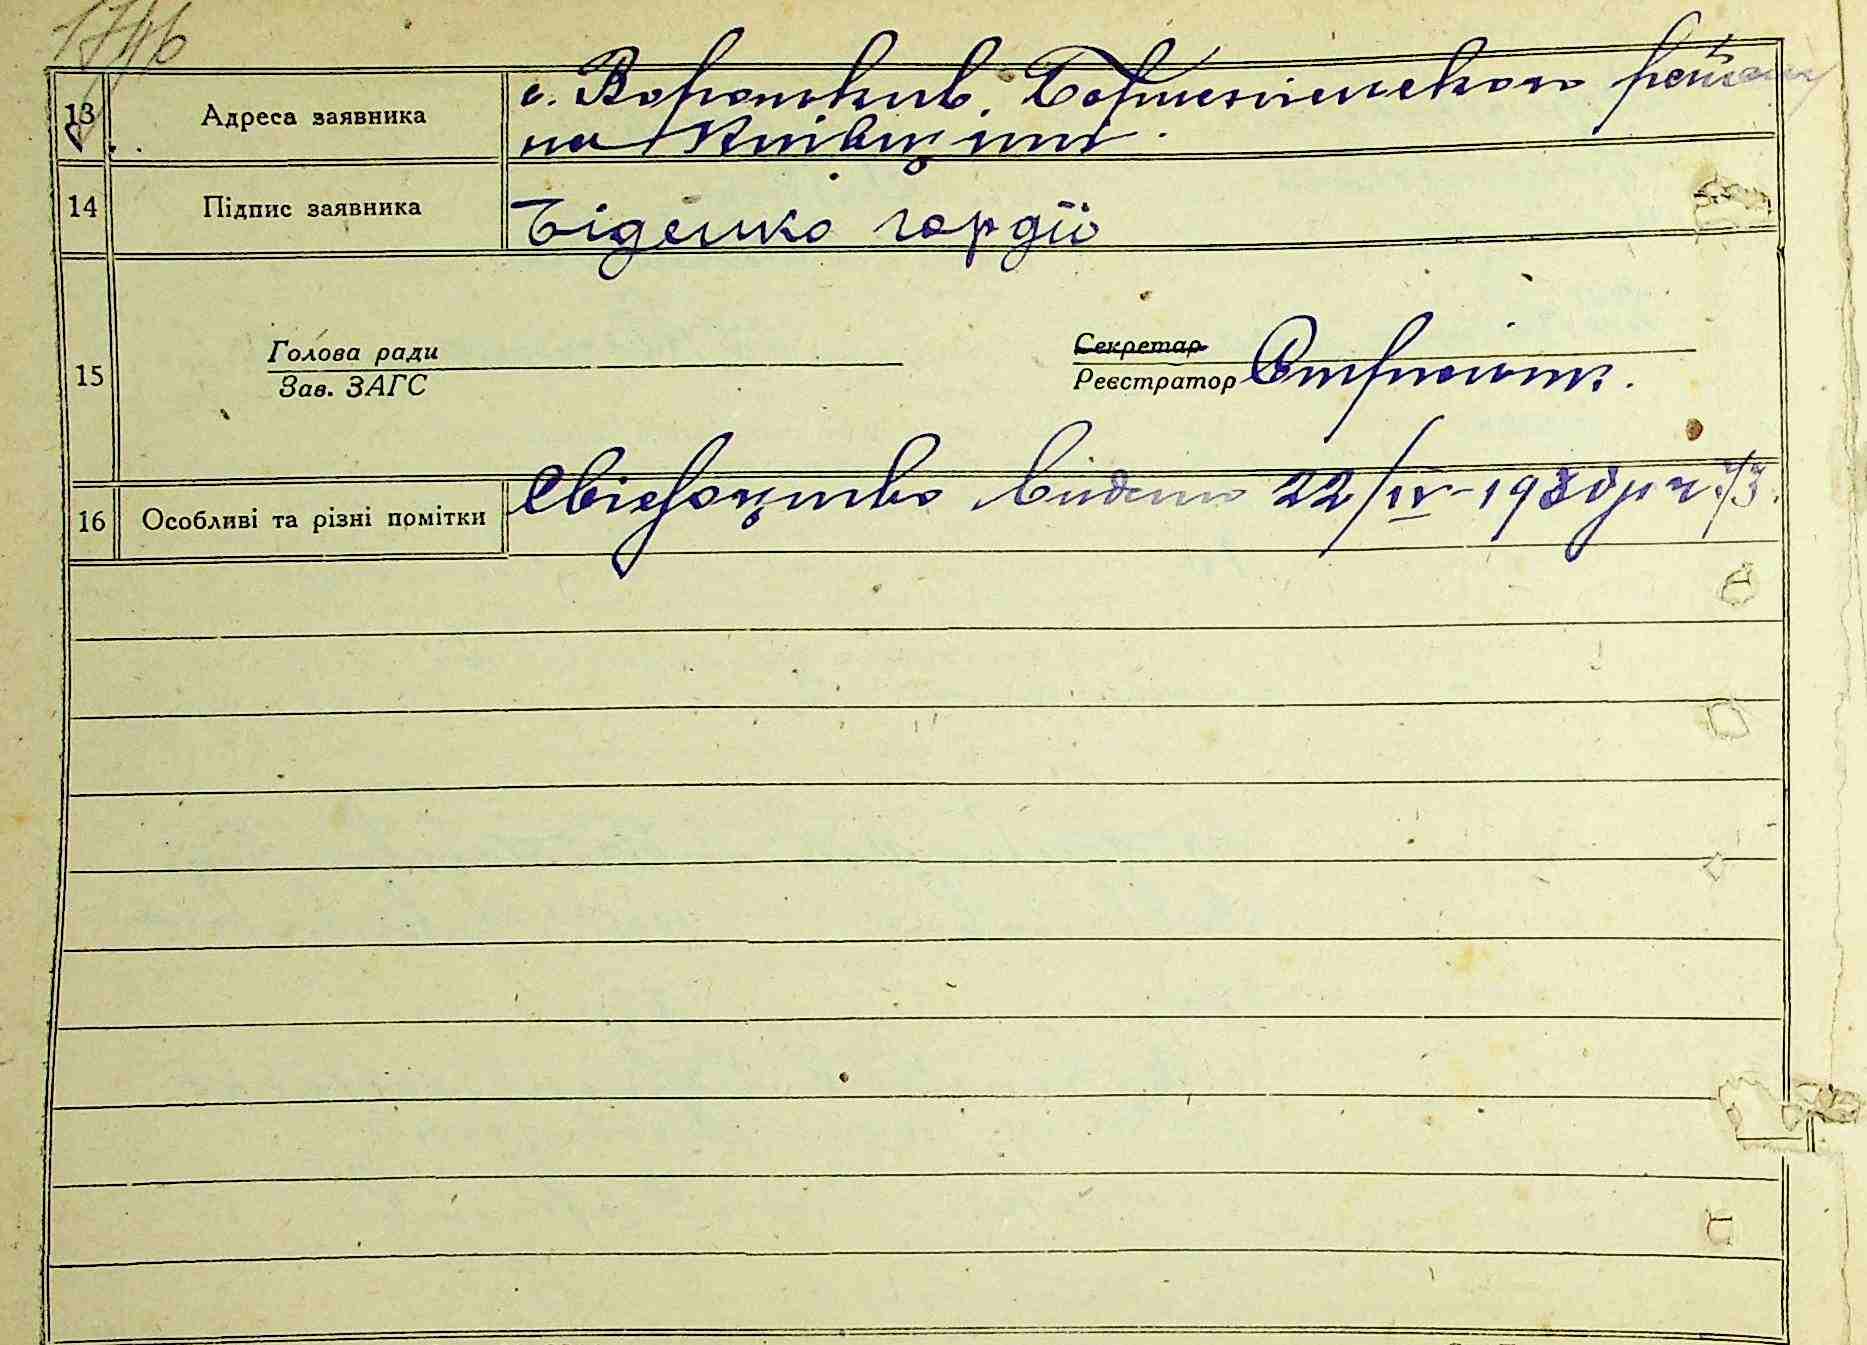 1746
13 Адреса заявника с. Вороньків, Бориспільського району
на Київщині.
14 Підпис заявника Біденко гордій
15 Голова ради Секретар
Зав. ЗАГС Реєстратор
16 Особливі та різні помітки Свідоцтво видано 22/IV-193